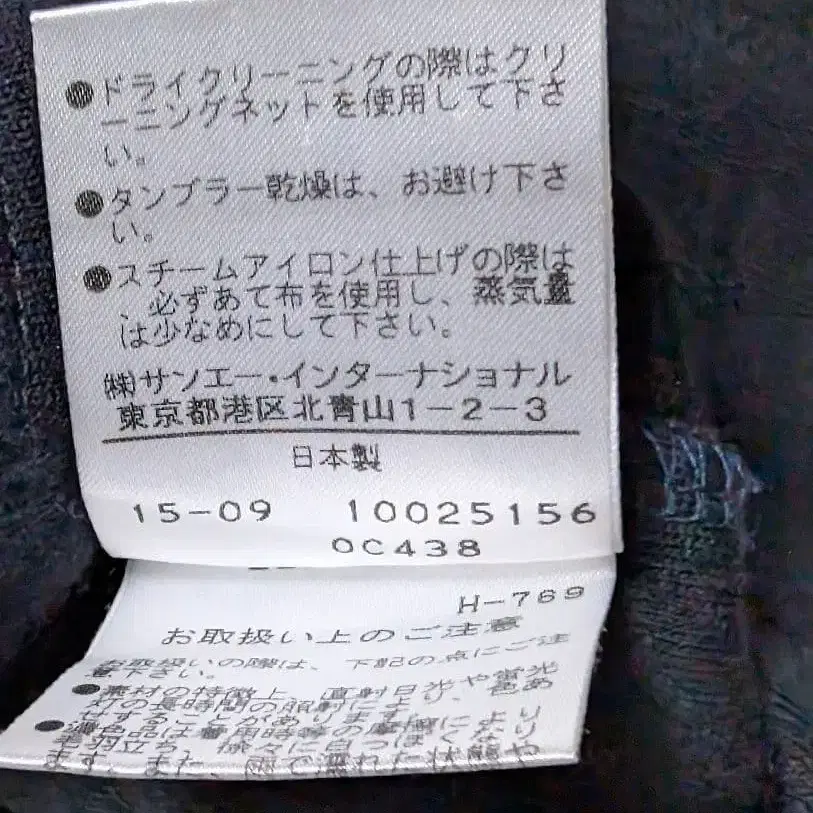 ●ドライクリーニングの際はクリ
ーニングネットを使用して下さ
い。
●タンブラー乾燥は、お避け下さ
い。
●スチームアイロン仕上げの際は
必ずあて布を使用し、蒸気量
は少なめにして下さい。
㈱サンエー・インターナショナル
東京都港区北青山1-2-3
日本製
15-09 10025156
0C438
H-769
お取扱い上のご注意
お取扱いの際は、下記の点にご注
意下さい。
●素材の特徴上、直射日光や蛍光
灯の長時間の照射により、色あ
せすることがあります。
●濃色品は着用時等の摩擦により
毛羽立ち、徐々に白っぽくなり
ます。また、雨で濡れた状態や